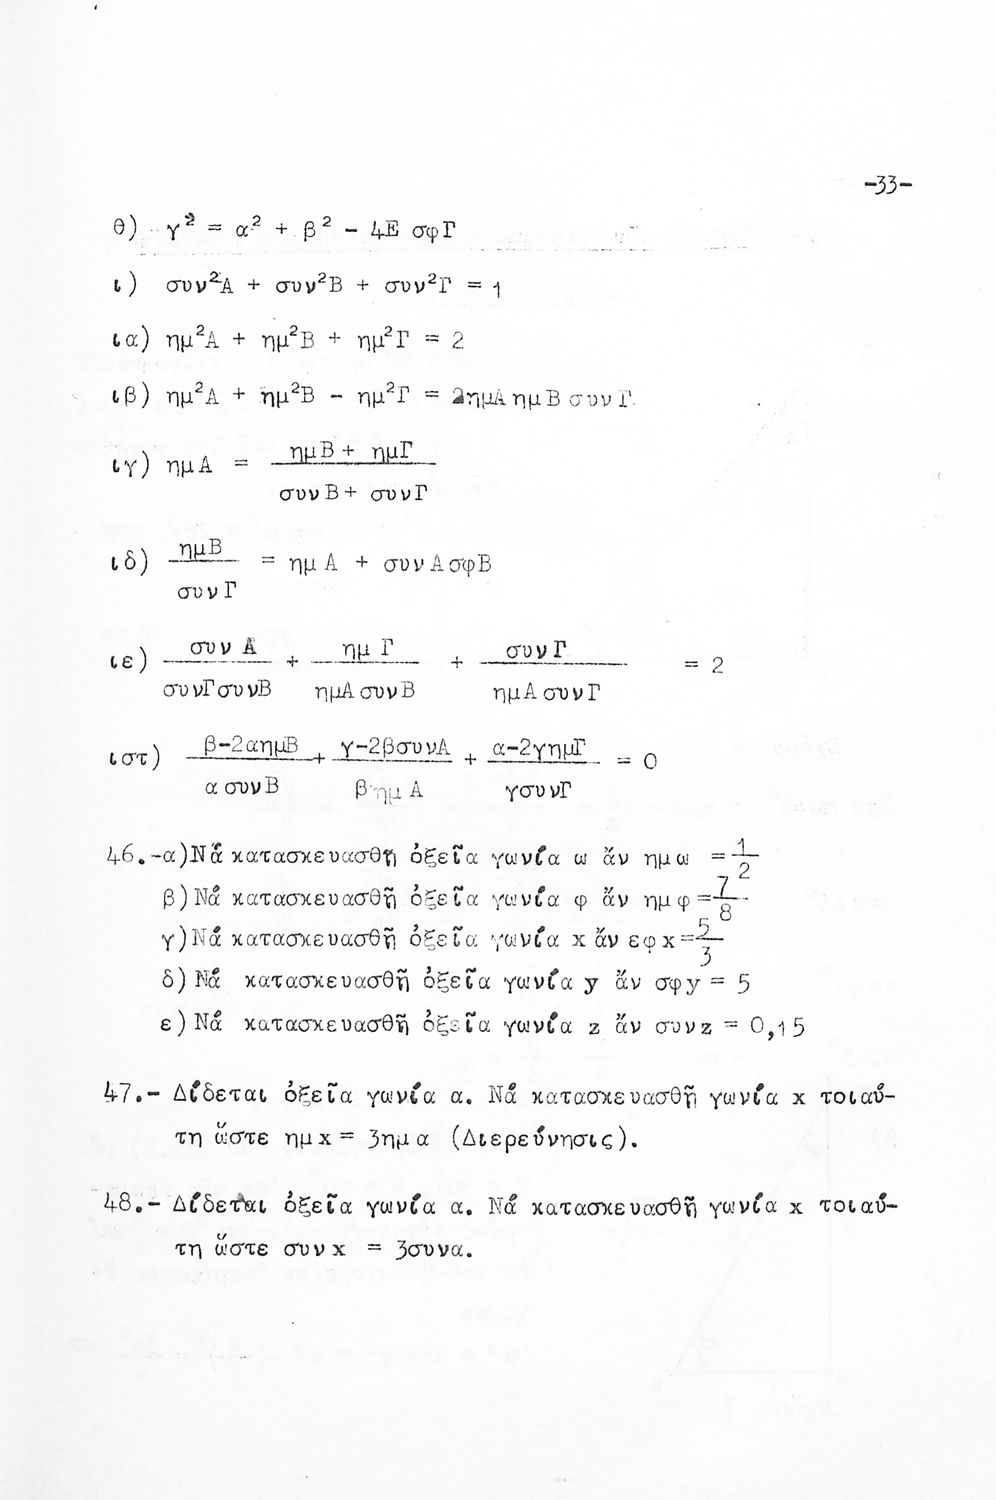 -33-
θ) γ² = α² + β² - 4Ε σφΓ
ι) συν²Α + συν²Β + συν²Γ = 1
ια) ημ²Α + ημ²Β + ημ²Γ = 2
ιβ) ημ²Α + ημ²Β - ημ²Γ = 2ημΑ ημΒ συνΓ
ιγ) ημΑ = ημΒ + ημΓ
συνΒ + συνΓ
ιδ) ημΒ = ημΑ + συνΑσφΒ
συνΓ
ιε) συνΑ + ημΓ + συνΓ = 2
συνΓσυνΒ ημΑσυνΒ ημΑσυνΓ
ιστ) β-2αημΒ + γ-2βσυνΑ + α-2γημΓ = 0
ασυνΒ βημΑ γσυνΓ
46.-α)Νά κατασκευασθῆ ὀξεῖα γωνία ω ἄν ημω = 1/2
β)Νά κατασκευασθῆ ὀξεῖα γωνία φ ἄν ημφ = 7/8
γ)Νά κατασκευασθῆ ὀξεῖα γωνία x ἄν εφx = 5/3
δ)Νά κατασκευασθῆ ὀξεῖα γωνία y ἄν σφy = 5
ε)Νά κατασκευασθῆ ὀξεῖα γωνία z ἄν συνz = 0,15
47.- Δίδεται ὀξεῖα γωνία α. Νά κατασκευασθῆ γωνία x τοιαύ-
τη ὥστε ημx = 3ημα (Διερεύνησις).
48.- Δίδεται ὀξεῖα γωνία α. Νά κατασκευασθῆ γωνία x τοιαύ-
τη ὥστε συνx = 3συνα.